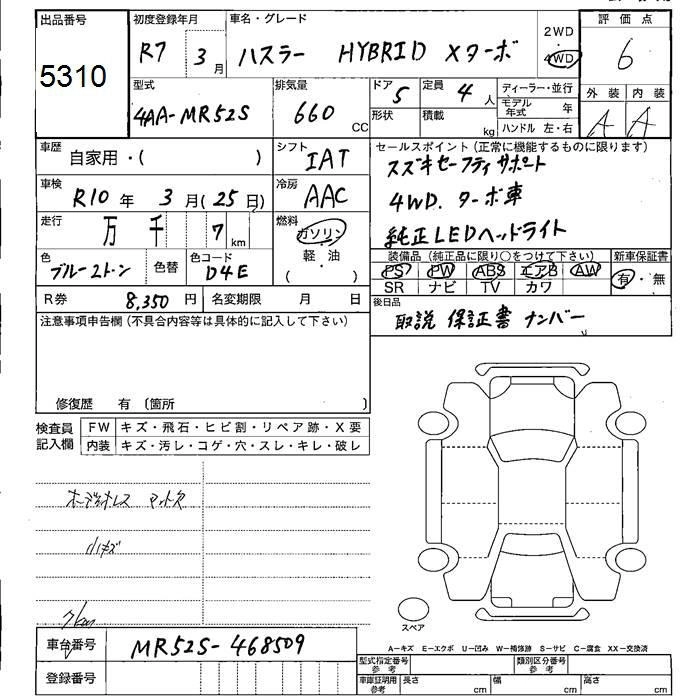 出品番号
5310
初度登録年月
R7 3月
車名・グレード
ハスラー HYBRID Xターボ
2WD
・
4WD
評価点
6
型式
4AA-MR52S
排気量
660 CC
ドア 5
形状
定員 4人
積載 kg
ディーラー・並行
モデル年式 年
ハンドル 左・右
外装 内装
A A
車歴
自家用・( )
シフト
IAT
セールスポイント(正常に機能するものに限ります)
スズキセーフティサポート
4WD. ターボ車
純正LEDヘッドライト
車検
R10年 3月(25日)
冷房
AAC
走行
万 千 7 km
燃料
ガソリン
軽・油
( ・ )
色
ブルー2トン
色替
色コード
D4E
装備品(純正品に限り○をつけて下さい)
PS PW ABS エアB AW
SR ナビ TV カワ
新車保証書
有・無
R券 8,350円
名変期限 月 日
後日品
取説 保証書 ナンバー
注意事項申告欄(不具合内容等は具体的に記入して下さい)
修復歴 有〔箇所 〕
検査員記入欄
FW キズ・飛石・ヒビ割・リペア跡・X要
内装 キズ・汚レ・コゲ・穴・スレ・キレ・破レ
オーディオレス マット欠
小キズ
スペア
A-キズ E-エクボ U-凹み W-補修跡 S-サビ C-腐食 XX-交換済
車台番号
MR52S-468509
登録番号
型式指定番号 参考
類別区分番号 参考
車庫証明用 参考
長さ cm 幅 cm 高さ cm